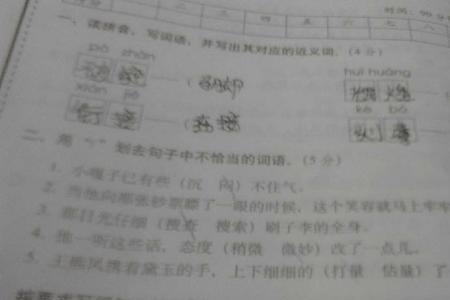 二 三 四 五 六 七 八
时间：90 分
一、读拼音，写词语，并写出其对应的近义词。(4 分)
pò zhàn huī huáng
破绽 —— ( 辉煌
xián jiē kè bó
衔接 —— (
二、用“\”划去句子中不恰当的词语。(5 分)
1. 小嘎子已有些（沉 闷）不住气。
2. 当他向那张钞票瞟了一眼的时候，这个笑容就马上牢牢
3. 那目光仔细（搜查 搜索）刷子李的全身。
4. 他一听这些话，态度（稍微 微妙）改了一点儿。
5. 王熙凤携着黛玉的手，上下细细的（打量 估量）了